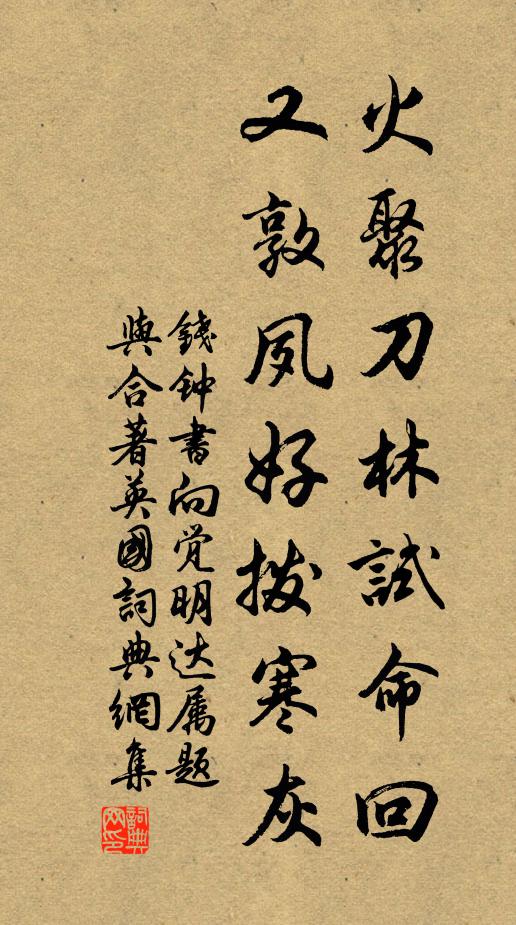 火聚刀林試命回
又敦夙好拨寒灰
錢钟書向觉明达属题
與合著英國詞典網集
詞典网印